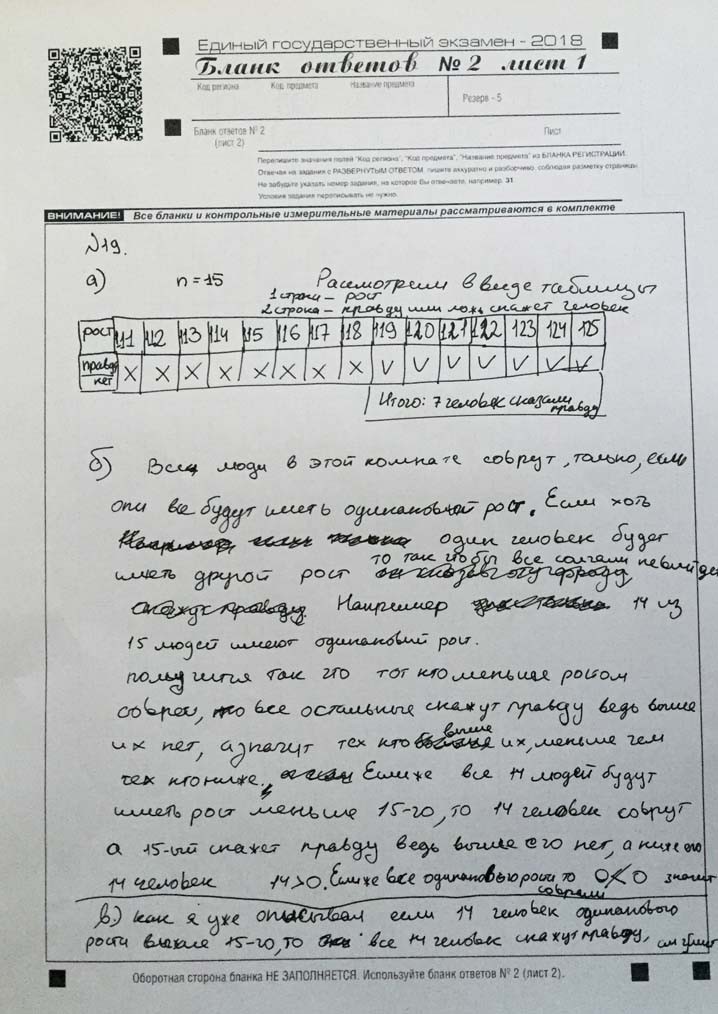 Единый государственный экзамен - 2018
Бланк ответов № 2 лист 1
Код региона Код предмета Название предмета
Резерв - 5
Бланк ответов № 2
(лист 2)
Лист
Перепишите значения полей "Код региона", "Код предмета", "Название предмета" из БЛАНКА РЕГИСТРАЦИИ.
Отвечая на задания с РАЗВЕРНУТЫМ ОТВЕТОМ, пишите аккуратно и разборчиво, соблюдая разметку страницы.
Не забудьте указать номер задания, на которое Вы отвечаете, например, 31
Условия задания переписывать не нужно.
ВНИМАНИЕ! Все бланки и контрольные измерительные материалы рассматриваются в комплекте
№19.
а) n = 15 Рассмотрим в виде таблицы
1 строка – рост
2 строка – правду или ложь скажет человек
рост 111 112 113 114 115 116 117 118 119 120 121 122 123 124 125
правда нет X X X X X X X X V V V V V V V
Итого: 7 человек сказали правду
б) Все люди в этой комнате соврут, только, если
они все будут иметь одинаковый рост. Если хоть
один человек будет
иметь другой рост то так чтобы все солгали не выйдет
Например 14 из
15 людей имеют одинаковый рост.
получится так что тот кто меньше ростом
соврет, все остальные скажут правду ведь выше
их нет, а значит тех кто выше их, меньше чем
тех кто ниже. Если же все 14 людей будут
иметь рост меньше 15-го, то 14 человек соврут
а 15-ый скажет правду ведь выше его нет, а ниже его
14 человек 14>0. Если же все одинакового роста то 0<0 значит
соврали
в) как я уже описывал если 14 человек одинакового
роста выше 15-го, то все 14 человек скажут правду,
Оборотная сторона бланка НЕ ЗАПОЛНЯЕТСЯ. Используйте бланк ответов № 2 (лист 2).